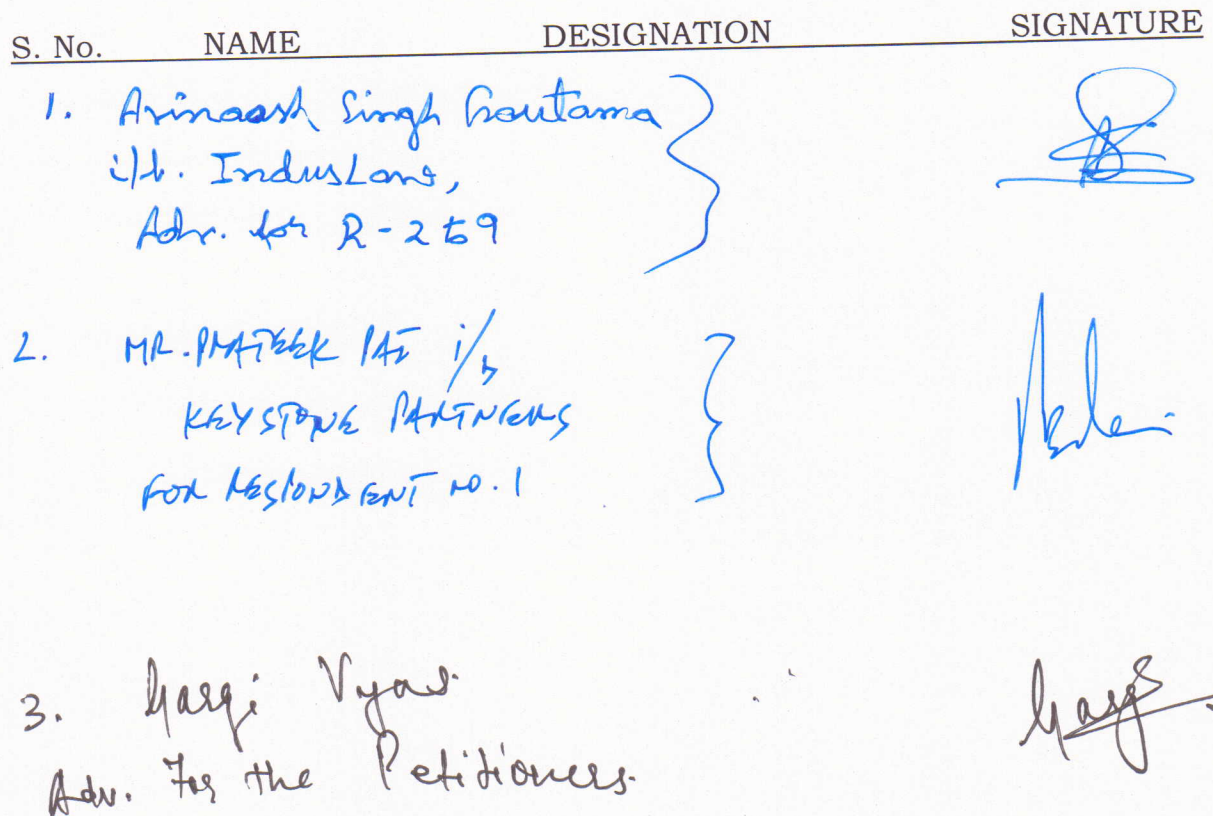 S. No. NAME DESIGNATION SIGNATURE
1. Avinaash Singh Goutama
i/b. IndusLaw,
Adv. for R-2 to 9
2. MR. PRATEEK PAI i/b
KEYSTONE PARTNERS
FOR RESPONDENT NO. 1
3. Gargi Vyas
Adv. For the Petitioners.
Gargi